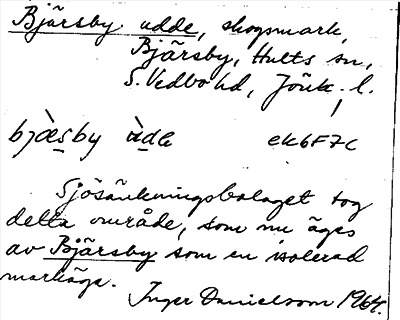 Bjärsby udde, skogsmark,
Bjärsby, Hults sn,
S. Vedbo hd, Jönk. l.
bjæ̀sby ùdɐ ek6F7c
Sjösänkningsbolaget tog
detta område, som nu äges
av Bjärsby som en isolerad
markäga.
Inger Danielsson 1964.